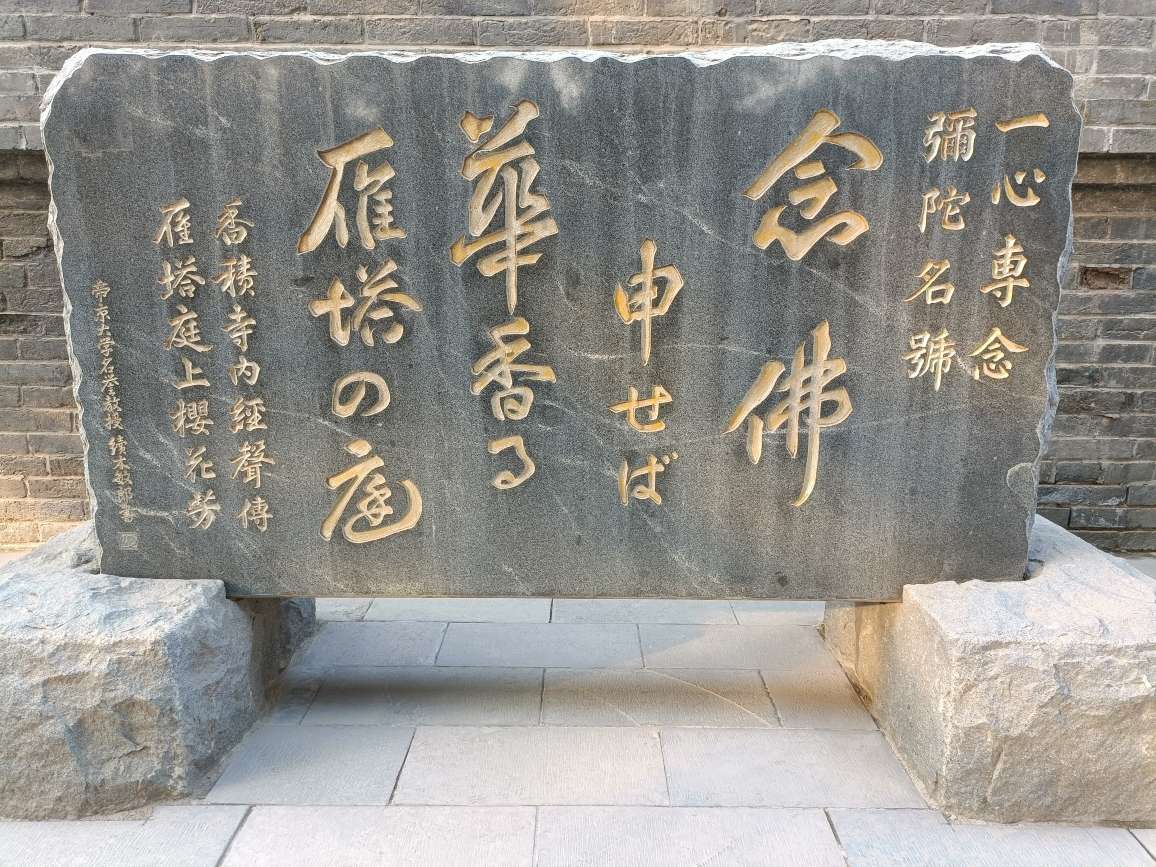 一心専念
彌陀名號
念佛
申せば
華香る
雁塔の庭
香積寺内經聲傳
雁塔庭上櫻花芳
帝京大学名誉教授 績木敏郎書